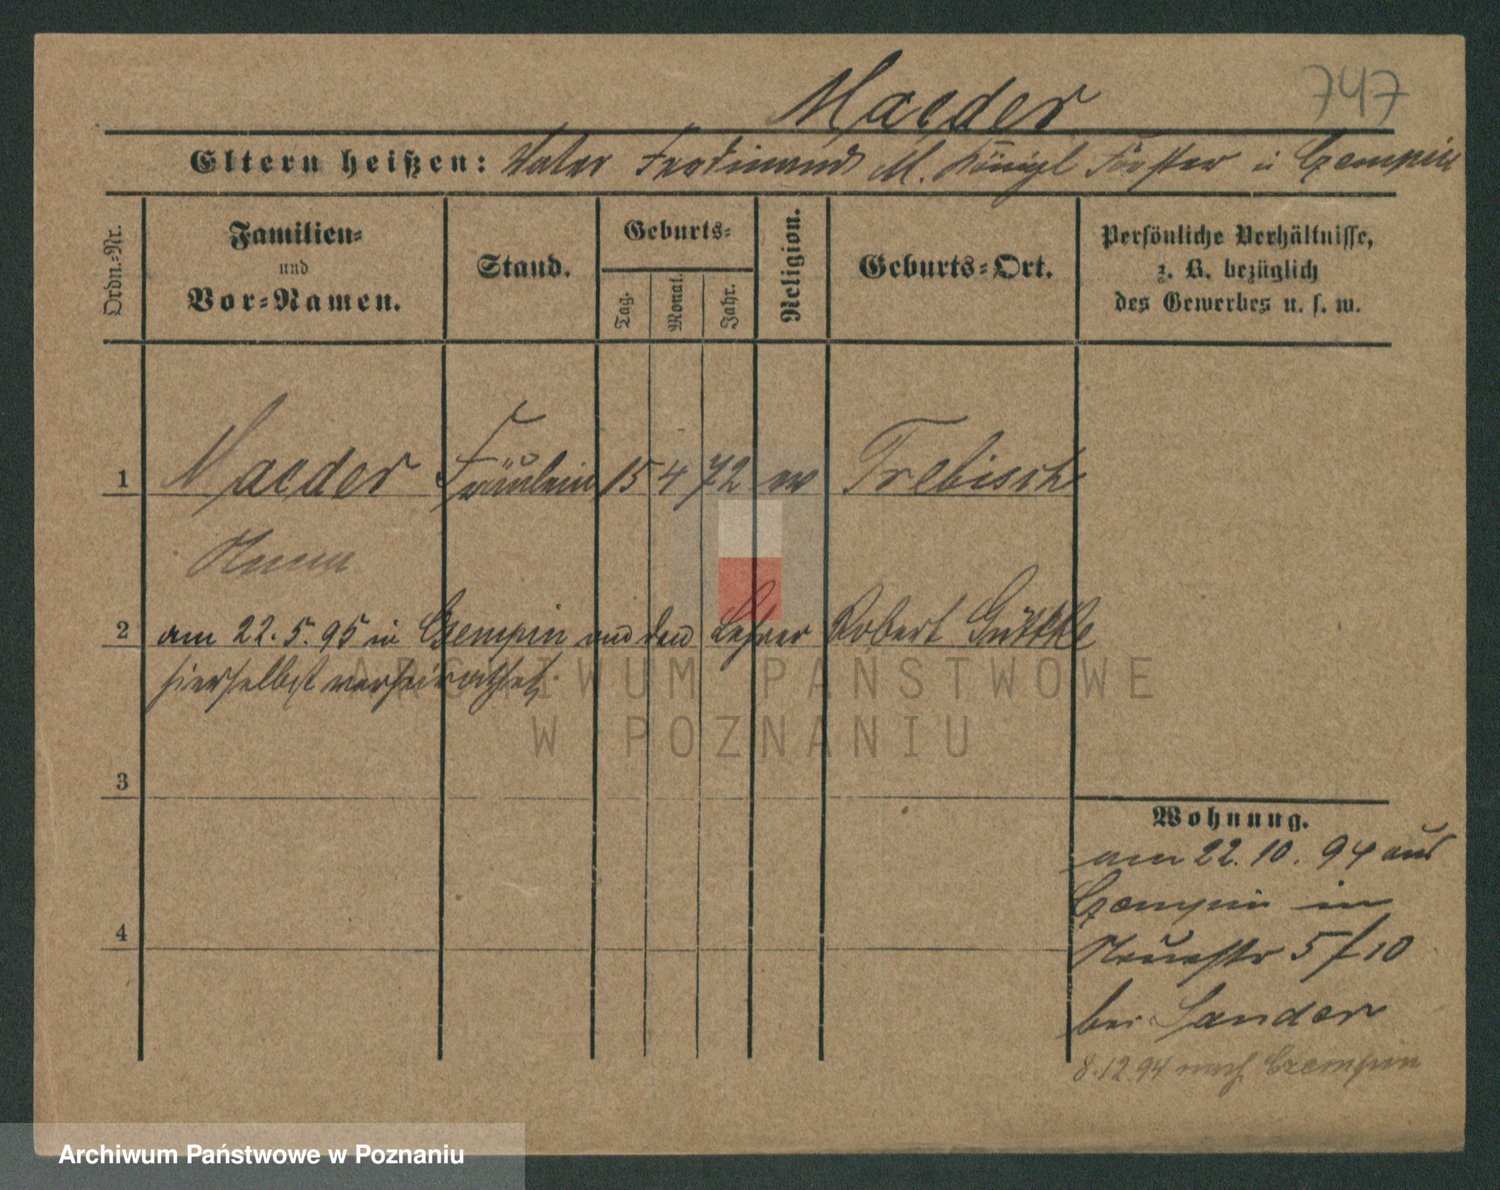 Maeder 747
Eltern heißen: Vater Ferdinand M. Königl Förster in Czempin
Ordn.-Nr.
Familien-
und
Vor-Namen.
Stand.
Geburts-
Tag.
Monat.
Jahr.
Religion.
Geburts-Ort.
Persönliche Verhältnisse,
z. B. bezüglich
des Gewerbes u. s. w.
1 Maeder Fräulein 15 4 72 ev Trebisch
Anna
2 am 22.5.95 in Czempin an den Lehrer Robert Güttke
hierselbst verheirathet.
3
4
Wohnung.
am 22.10.94 aus
Czempin in
Neuestr 5/10
bei Sander
8.12.94 nach Czempin
ARCHIWUM PAŃSTWOWE
W POZNANIU
Archiwum Państwowe w Poznaniu